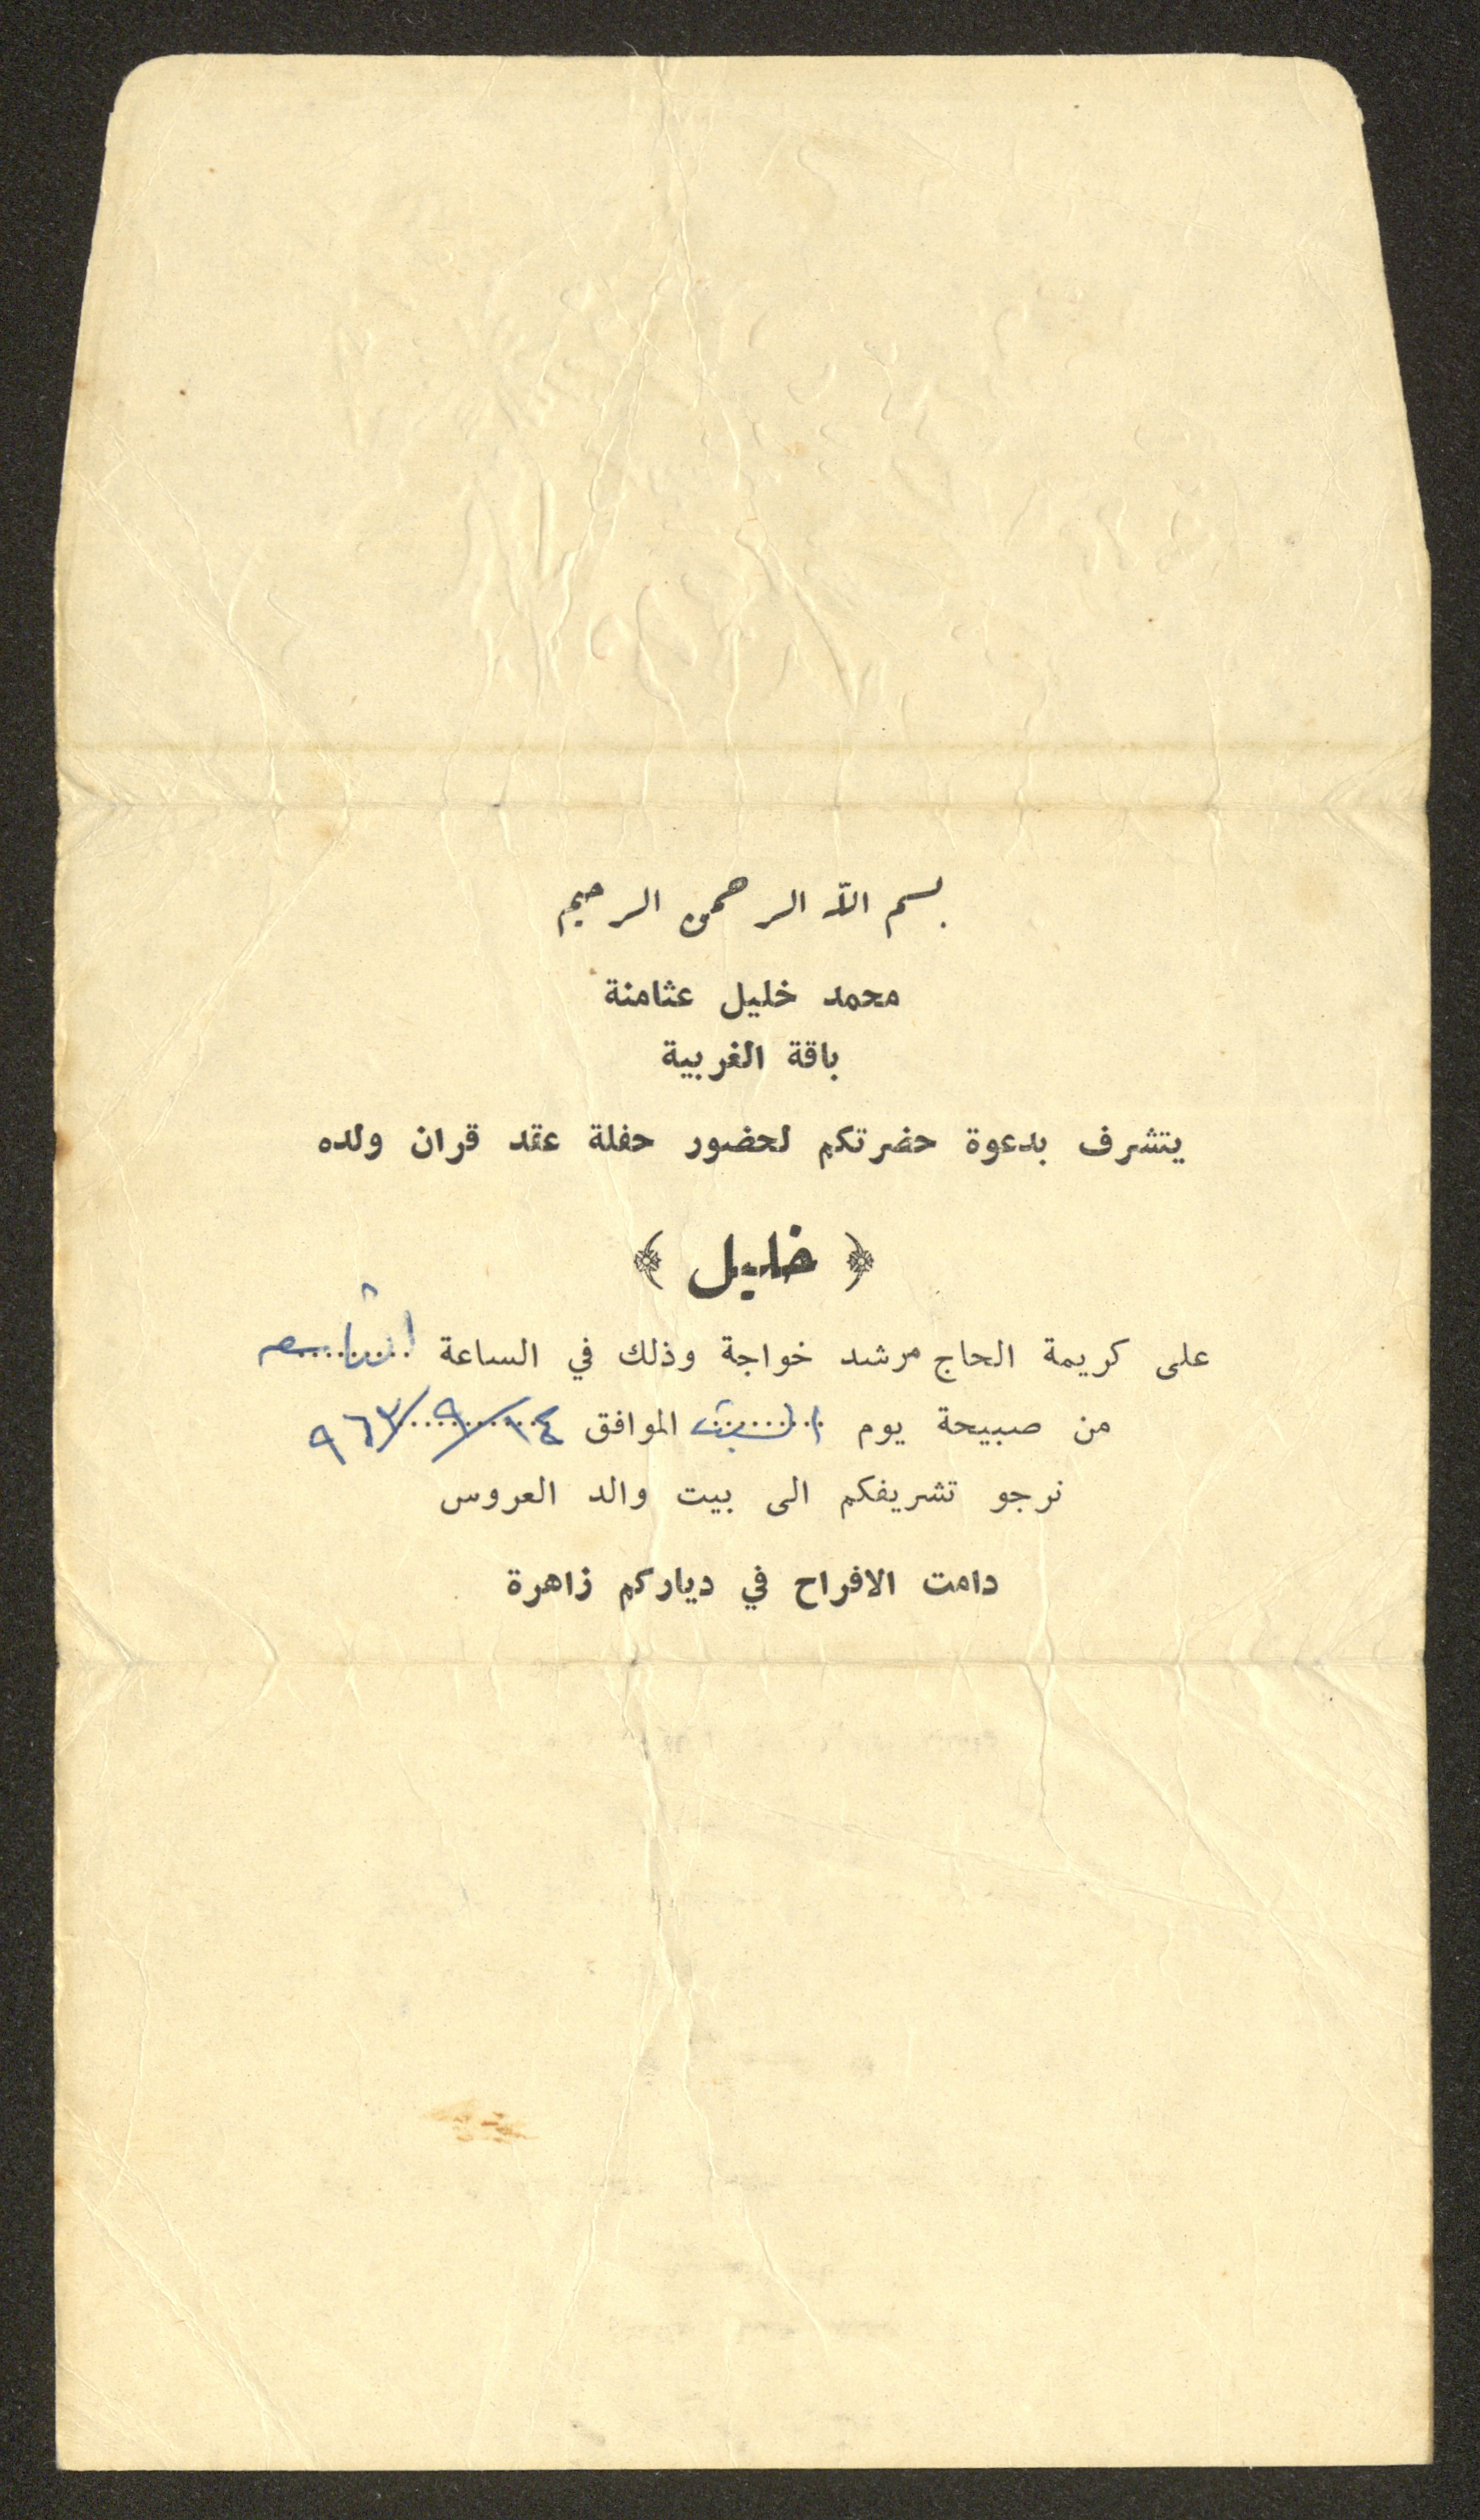 بسم الله الرحمن الرحيم
محمد خليل عثامنة
باقة الغربية
يتشرف بدعوة حضرتكم لحضور حفلة عقد قران ولده
﴿ خليل ﴾
على كريمة الحاج مرشد خواجة وذلك في الساعة
من صبيحة يوم السبت الموافق ١٤/٩/٩٦٣
نرجو تشريفكم الى بيت والد العروس
دامت الافراح في دياركم زاهرة